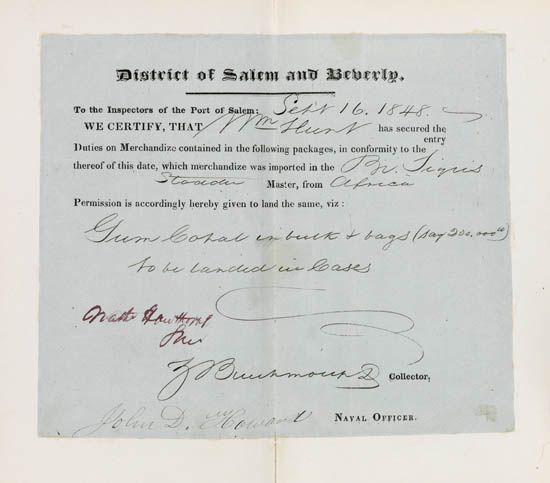 District of Salem and Beverly.
To the Inspectors of the Port of Salem: Sept 16. 1848.
WE CERTIFY, THAT Wm Hunt has secured the
entry
Duties on Merchandize contained in the following packages, in conformity to the
thereof of this date, which merchandize was imported in the Br. Tigris
Master, from Africa
Permission is accordingly hereby given to land the same, viz :
Gum Copal in bulk & bags (say 200.000
to be landed in Cases
Nath Hawthorne
Collector,
John D. Howard NAVAL OFFICER.